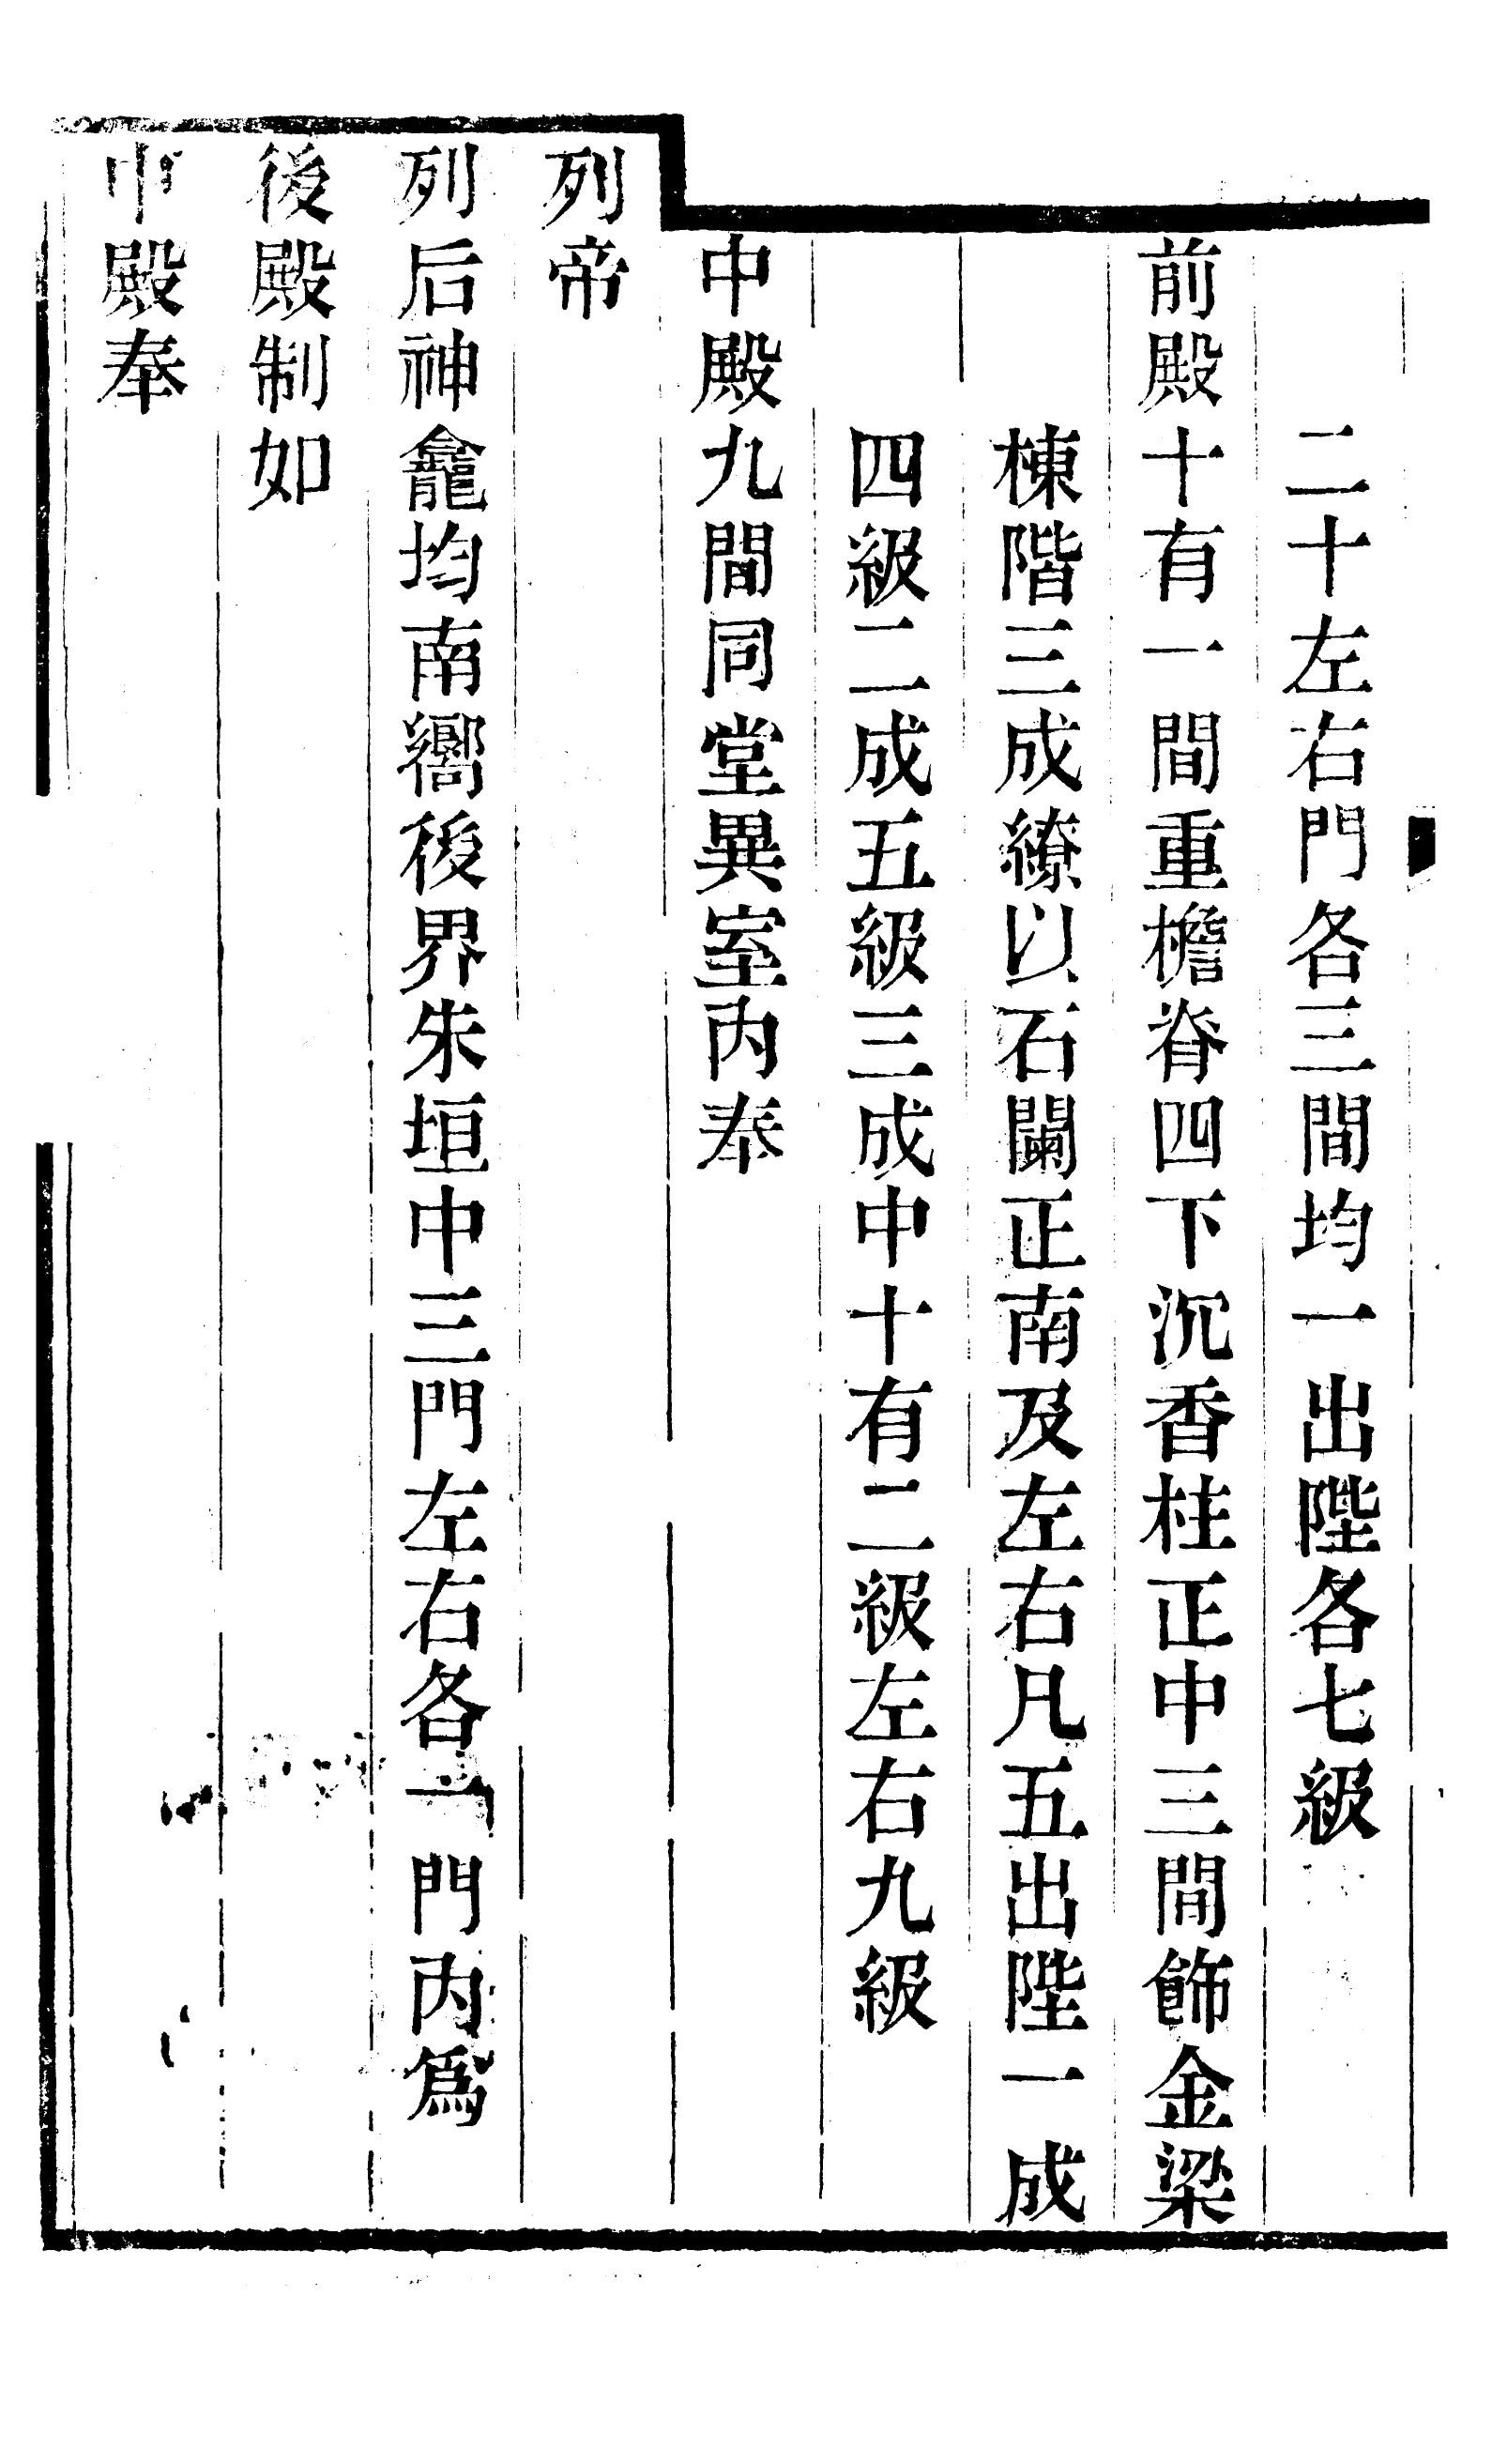 二十左右門各三間均一出陛各七級
前殿十有一間重檐脊四下沉香柱正中三間飾金梁
棟階三成繚以石闌正南及左右凡五出陛一成
四級二成五級三成中十有二級左右九級
中殿九間同堂異室內奉
列帝
列后神龕均南嚮後界朱垣中三門左右各一門內爲
後殿制如
中殿奉